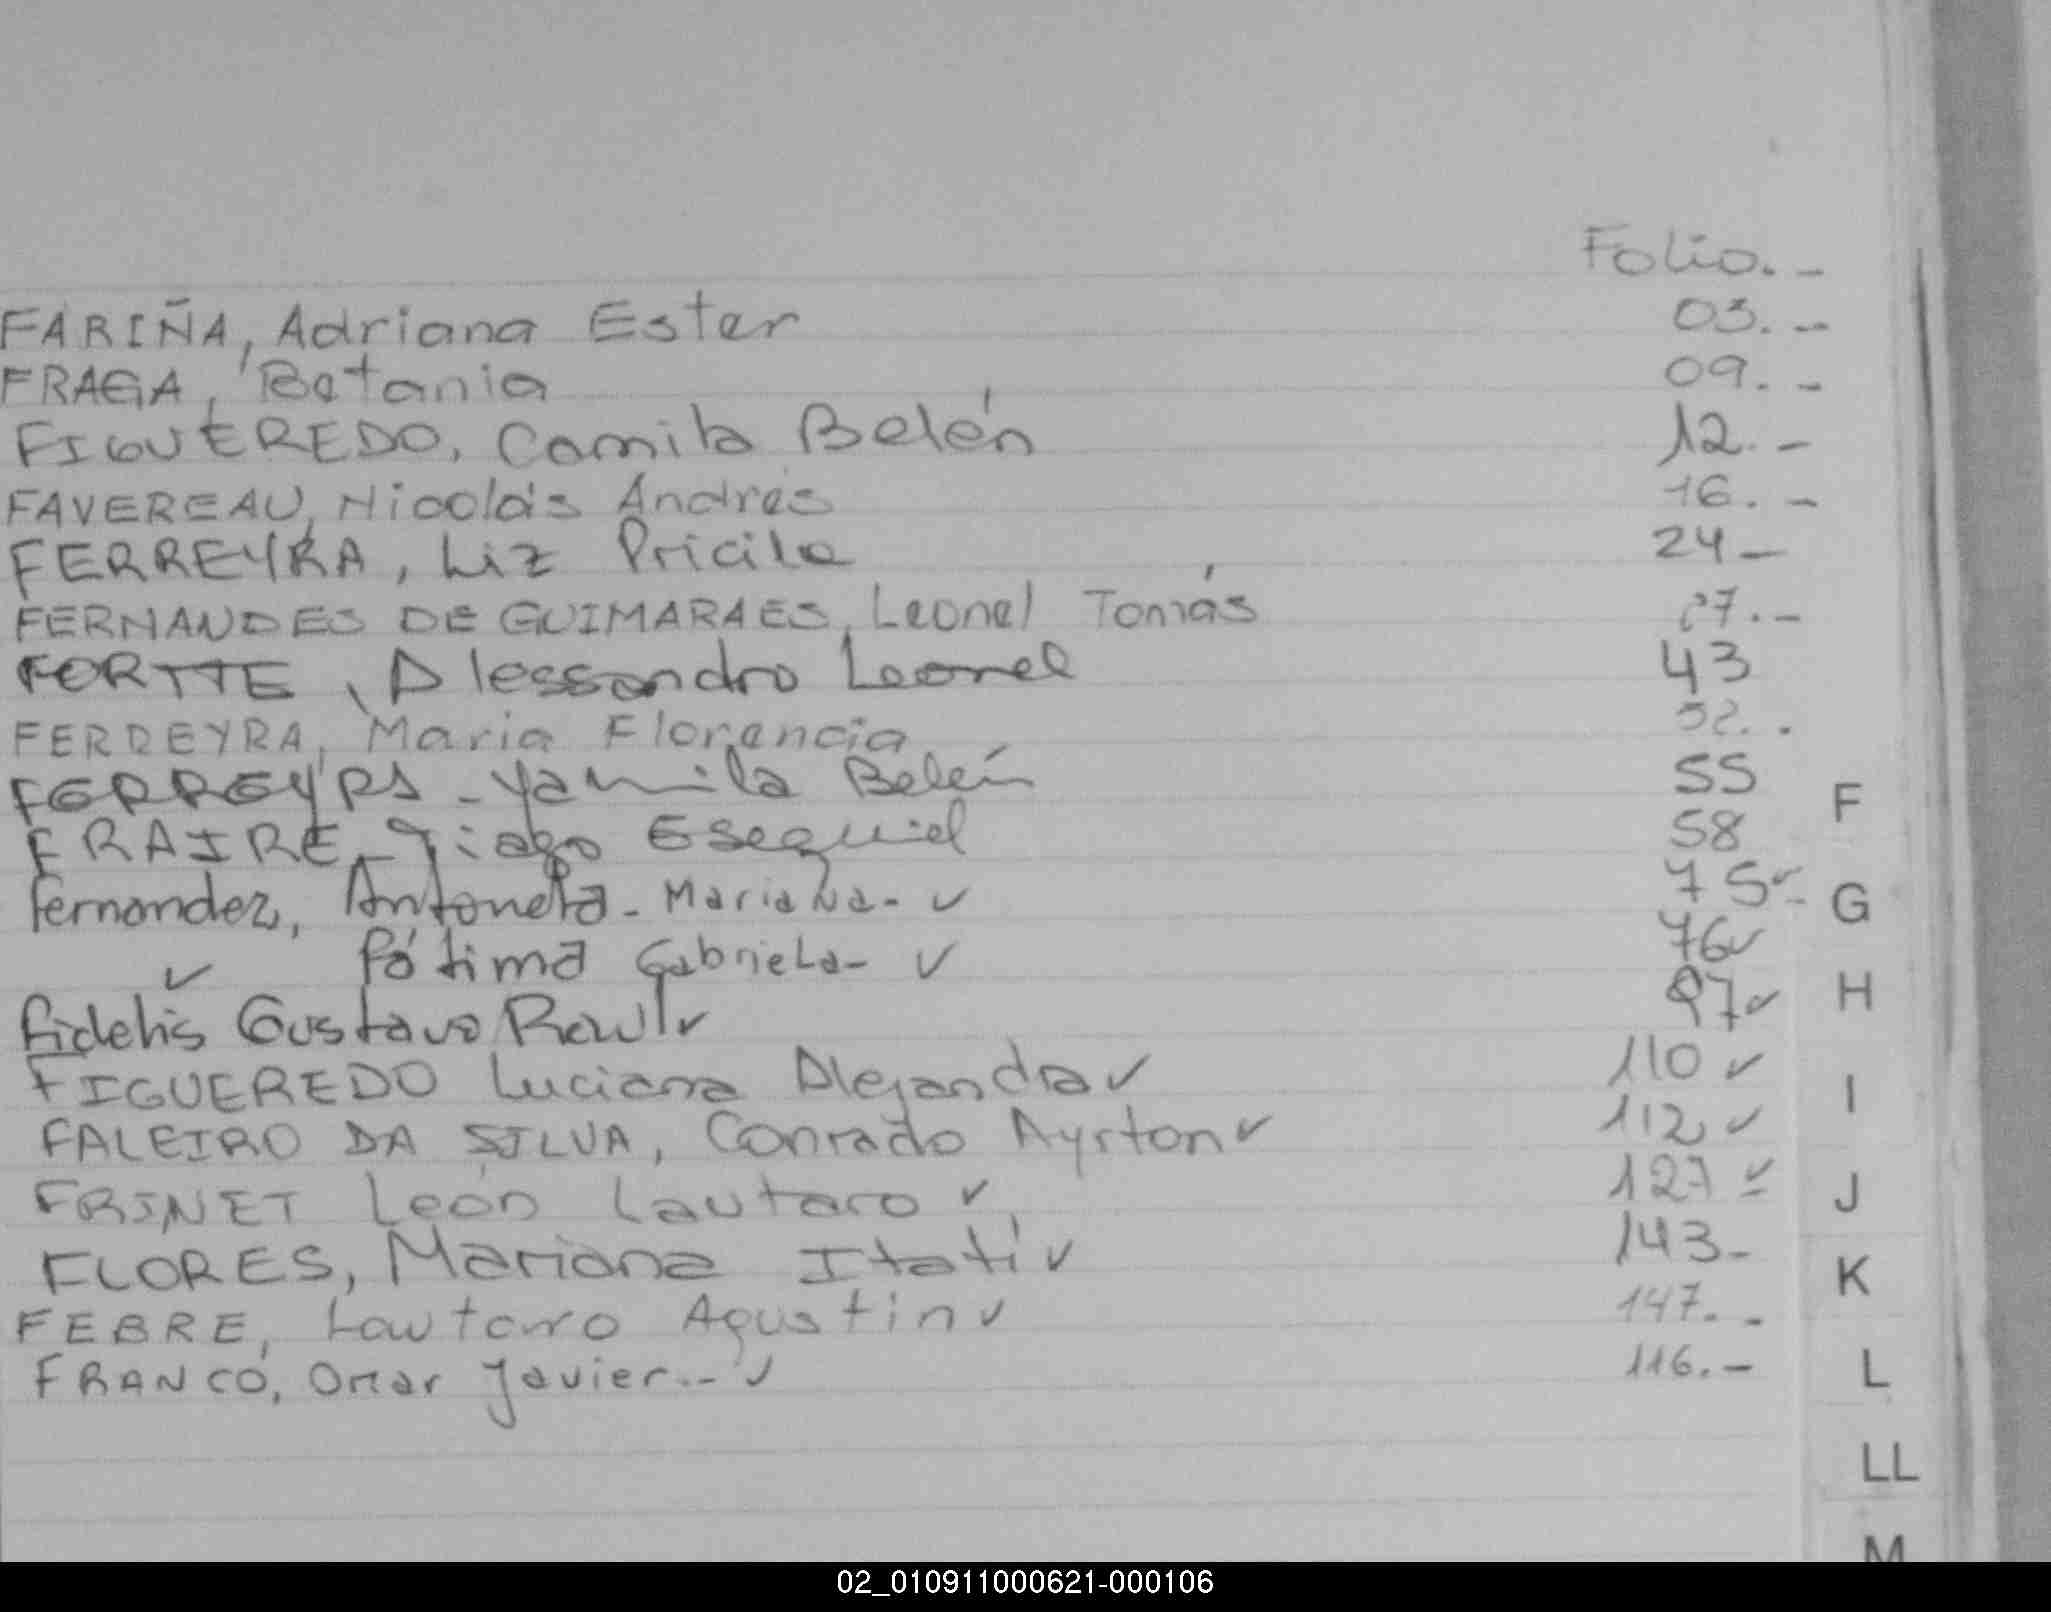 Folio. -
FARIÑA, Adriana Ester 03. -
FRAGA, Betania 09. -
FIGUEREDO, Camila Belén 12. -
FAVEREAU, Nicolás Andrés 16. -
FERREYRA, Liz Pricila 24 -
FERNANDES DE GUIMARAES, Leonel Tomás 27. -
FORTTE, Alessandro Leonel 43
FERREYRA, Maria Florencia 52. .
FERREYRA - Yamila Belén 55
FRAIRE - Tiago Esequiel 58
Fernandez, Antoneta - Mariana - ✓ 75 ✓ -
✓ Fátima Gabriela - ✓ 76 ✓
Fidelis Gustavo Raul ✓ 97 ✓
FIGUEREDO Luciana Alejandra ✓ 110 ✓
FALEIRO DA SILVA, Conrado Ayrton ✓ 112 ✓
FRINET León Lautaro ✓ 127 ✓
FLORES, Mariana Itatí ✓ 143 -
FEBRE, Lautaro Agustin ✓ 147. -
FRANCO, Omar Javier.. - ✓ 116. -
F
G
H
I
J
K
L
LL
M
02_010911000621-000106